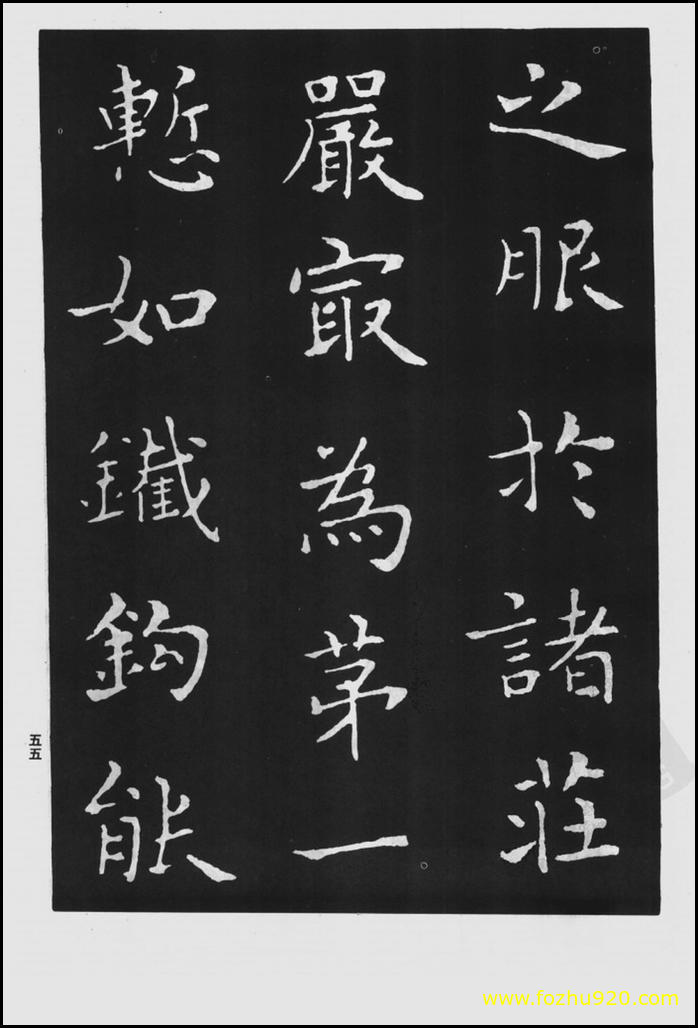 之服於諸莊
嚴㝡為苐一
慙如鐵鈎能
五五
www.fozhu920.com